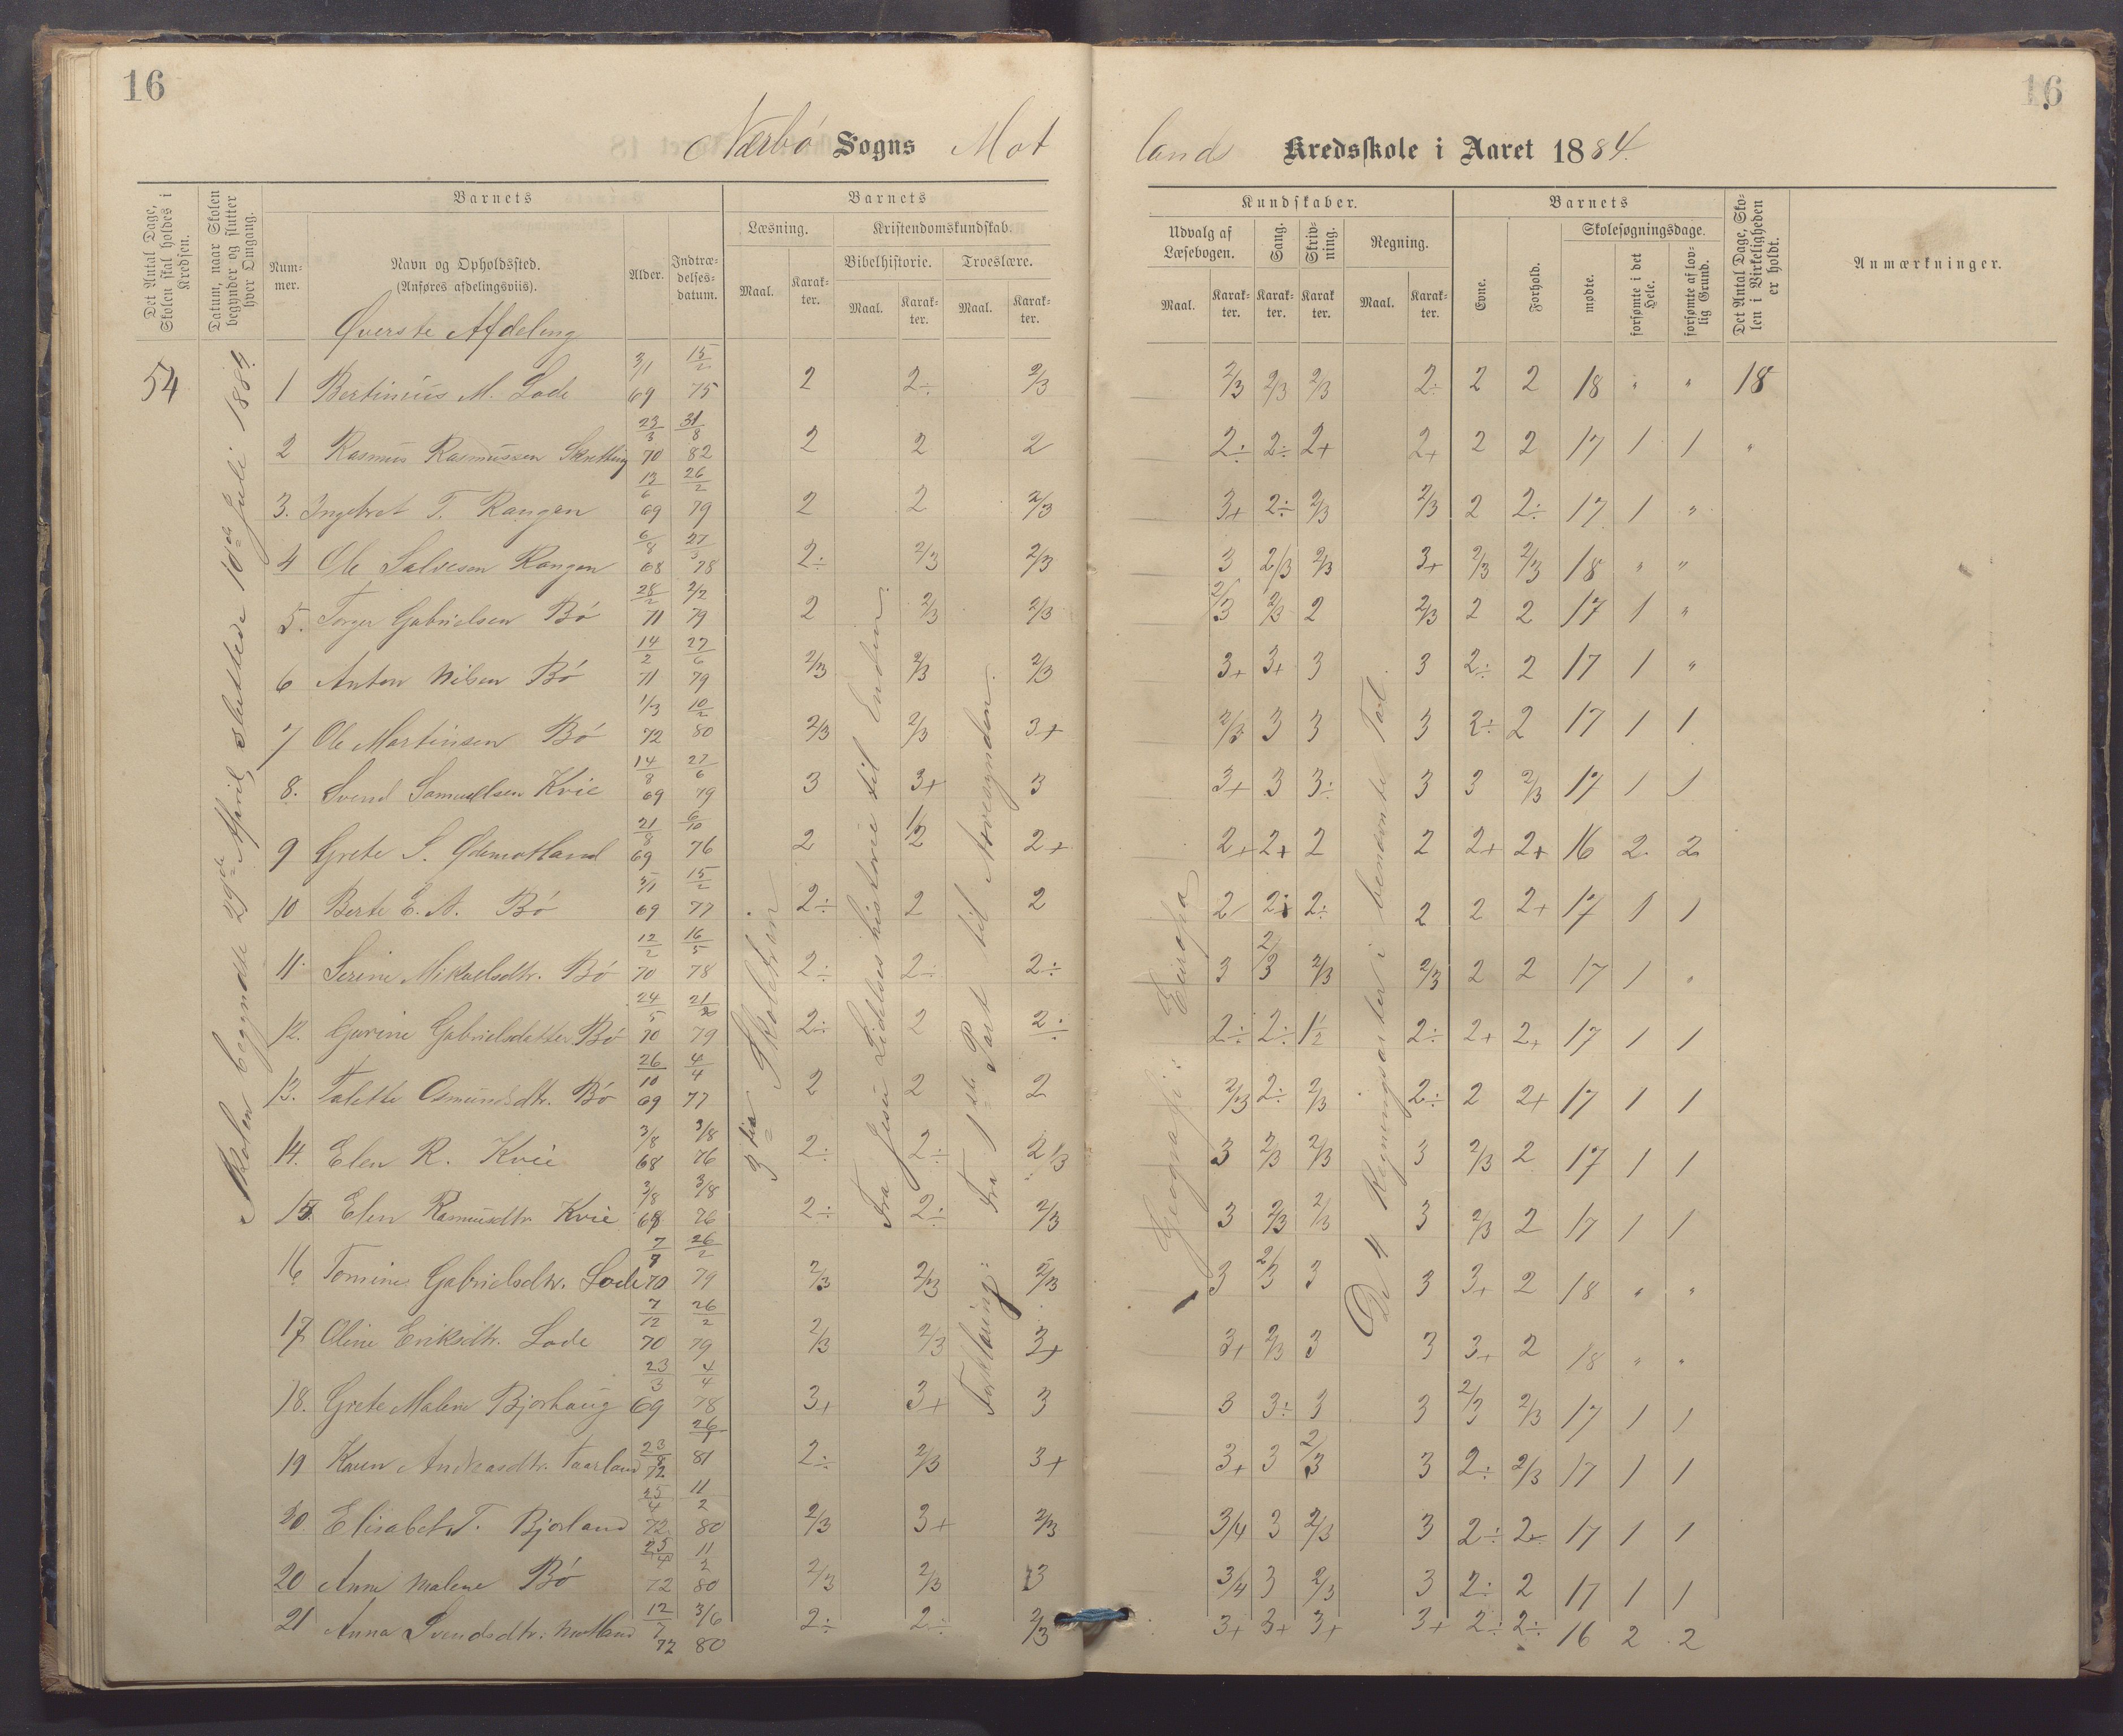 16
16
Nærbø Sogns Mot
lands Kredsskole i Aaret 1884.
Det Antal Dage, Skolen skal holdes i Kredsen.
Datum, naar Skolen begynder og slutter hver Omgang.
Barnets
Num-mer.
Navn og Opholdssted.
(Anføres afdelingsviis).
Alder.
Indtræ-delses-datum.
Barnets
Læsning.
Maal.
Karak-ter.
Kristendomskundskab.
Bibelhistorie.
Maal.
Karak-ter.
Troeslære.
Maal.
Karak-ter.
Kundskaber.
Udvalg af Læsebogen.
Maal.
Karak-ter.
Sang.
Karak-ter.
Skriv-ning.
Karak ter.
Regning.
Maal.
Karak-ter.
Barnets
Evne.
Forhold.
Skolesøgningsdage.
mødte.
forsømte i det Hele.
forsømte af lov-lig Grund.
Det Antal Dage, Sko-len i Virkeligheden er holdt.
Anmærkninger.
Øverste Afdeling
54
Skolen begyndte 29de April, sluttede 10de Juli 1884.
3die Skoletrin
Fra Jesu Lidelses historie til Enden.
Forklaring: Fra 1ste Part til Annengnden.
Geografi: Europa
De 4 Regningsarter i benævnte Tal.
1 Bertinius M. Lode 3/1 69 15/2 75 2 2÷ 2/3 2/3 2/3 2/3 2÷ 2 2 18 " " 18
2 Rasmus Rasmussen Skretting 23/3 70 31/8 82 2 2 2 2÷ 2÷ 2+ 2+ 2 2 17 1 1 "
3. Ingebret T. Rangen 13/6 69 26/2 79 2 2 2/3 3+ 2÷ 2/3 2/3 2 2÷ 17 1 "
4 Ole Salvesen Rangen 6/8 68 27/3 78 2÷ 2/3 2/3 3 2/3 2/3 3+ 2/3 2/3 18 " "
5. Torger Gabrielsen Bø 28/2 71 2/2 79 2 2/3 2/3 2/3 2/3 2 2/3 2 2 17 1 "
6 Anton Nilsen Bø 14/2 71 27/6 79 2/3 2/3 2/3 3+ 3+ 3 3 2÷ 2 17 1 "
7 Ole Martinsen Bø 1/3 72 10/2 80 2/3 2/3 3+ 2/3 3 3 3 2÷ 2 17 1 1
8. Svend Samuelsen Kvie 14/8 69 27/6 79 3 3+ 3 3+ 3 3÷ 3 3 2/3 17 1 1
9 Grete S. Ødemotland 21/8 69 6/10 76 2 1/2 2+ 2+ 2+ 2 2 2+ 2+ 16 2 2
10 Berte E. A. Bø 5/1 69 15/2 77 2÷ 2 2 2 2÷ 2÷ 2 2 2+ 17 1 1
11. Serine Mikaelsdtr. Bø 12/2 70 16/5 78 2÷ 2÷ 2÷ 3 2/3 2/3 2/3 2 2 17 1 "
12. Gurine Gabrielsdatter Bø 24/5 70 21/2 79 2÷ 2 2÷ 2÷ 2÷ 1/2 2÷ 2+ 2+ 17 1 1
13. Talette Osmundsdtr. Bø 26/10 69 4/4 77 2 2 2 2/3 2÷ 2/3 2÷ 2 2+ 17 1 1
14. Elen R. Kvie 3/8 68 3/8 76 2÷ 2÷ 2/3 3 2/3 2/3 3 2/3 2 17 1 1
15. Elen Rasmusdtr Kvie 3/8 68 3/8 76 2÷ 2÷ 2/3 3 2/3 2/3 3 2/3 2 17 1 1
16 Tomine Gabrielsdtr. Lode 7/7 70 26/2 79 2/3 2/3 2/3 3 2/3 3 3 3+ 2 18 " "
17 Oline Eriksdtr. Lode 7/12 70 26/2 79 2/3 2/3 3+ 3+ 2/3 3 3 3+ 2 18 " "
18. Grete Malene Bjorhaug 23/3 69 4/4 78 3+ 3+ 3 3 3÷ 3 3 2/3 2/3 17 1 1
19 Karen Andreasdtr. Taarland 23/8 72 26/1 81 2÷ 2/3 3+ 3+ 3 2/3 3 2÷ 2/3 17 1 1
20. Elisabet T. Bjorland 25/4 72 11/2 80 2/3 3+ 2/3 3/4 3 2/3 3 2÷ 2÷ 17 1 1
20 Anne Malene Bø 23/4 72 11/2 80 2/3 2/3 3 3/4 3 2/3 3 2÷ 2 17 1 1
21 Anna Svendsdtr. Motland 12/7 72 3/6 80 2÷ 2÷ 2/3 3+ 3+ 3+ 3+ 2÷ 2÷ 16 2 2